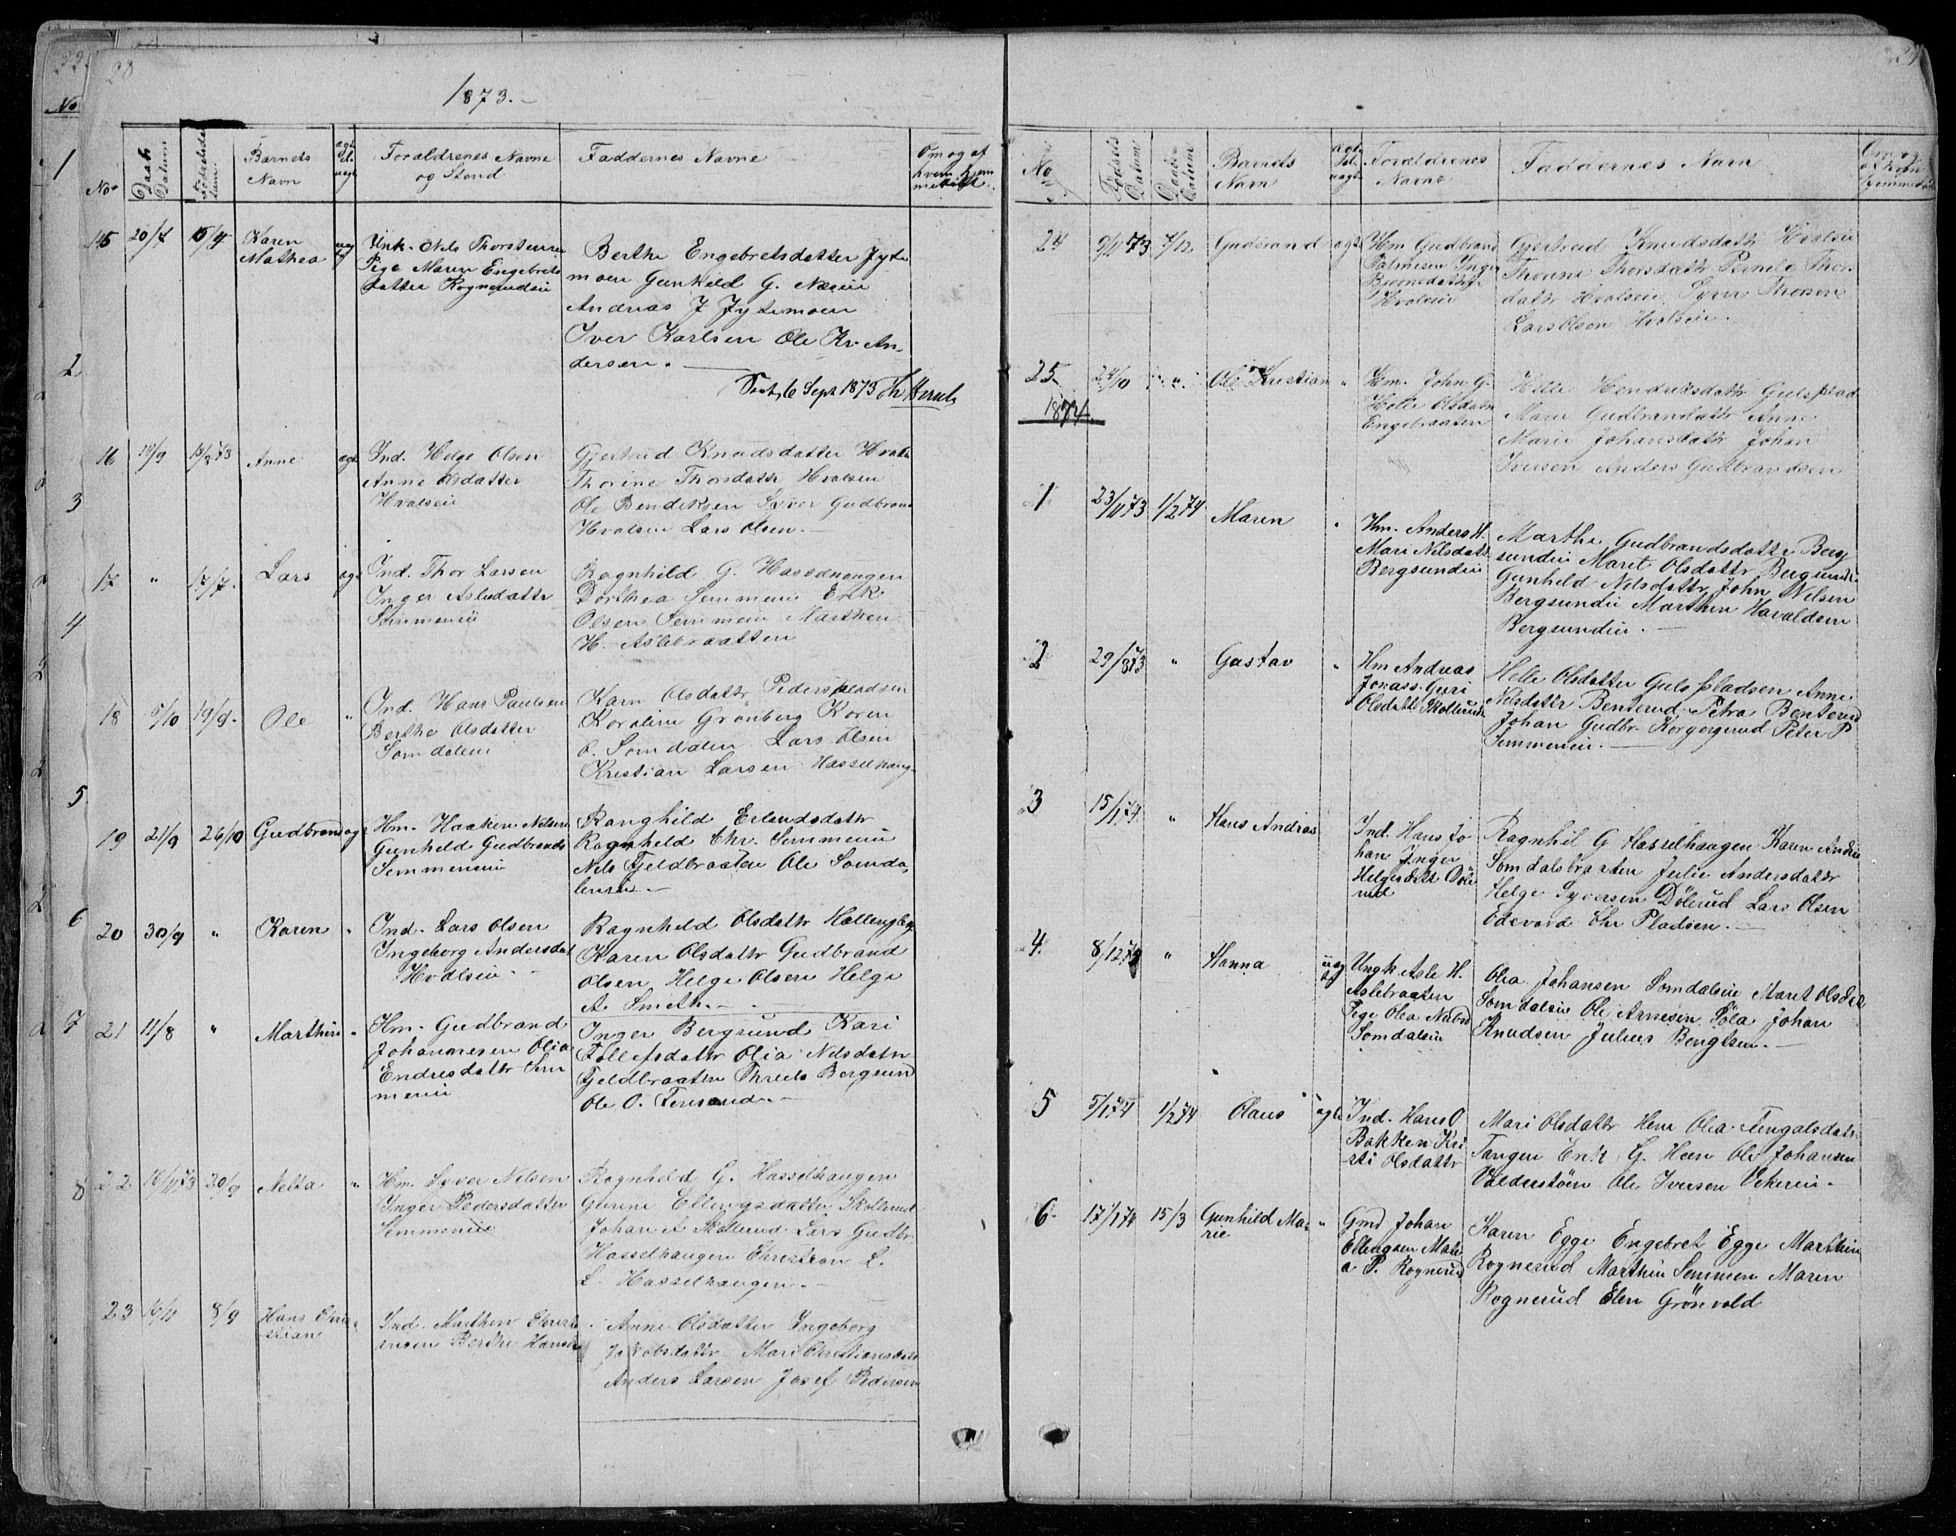 28
1873.
No
Daab Datum
Fødselsdatum
Barnets Navn
Forældrenes Navne og Stand
Faddernes Navne
15 20/7 Karen Mathea
Unk. Nils Thorstensen
Pige Maren Engebrets
datter Rognerudei
Berthe Engebretsdatter
moen Gunhild G. Næsei
Andreas J
Iver Karlsen Ole Kr. An-
dersen.
Sept 1873
16 13/2 73 Anne ægte
Ind. Helge Olsen
Anne Olsdatter
Hvalseie
Gjertrud Knudsdatter
Thorine Thorsdattr Hvalsei
Ole Bendiksen Syver Gudbrand
Hvalseie Lars Olsen
17 " 17/7. Lars ægte
Ind. Thor Larsen
Inger Aslesdatter
Semmeneie
Ragnhild G. Hasselhaugen
Dorthea Semmeneie Erik
Olsen Semmen Marthen
H. Aslebraatten
18 5/10 Ole "
Ind. Hans Paulsen
Berthe Olsdatter
Somdalen
Karn Olsdattr Pederspladsen
Karoline Grønberg Karen
O. Somdalen Lars Olsen
Kristian Larsen Hasselhaug
19 21/9 26/10 Gudbrand ægte
Hm. Haaken Nilsen
Gunhild Gudbrands
Semmeneie
Ranghild Erlandsdattr
Ragnhild Chr. Semmeneie
Nils Fjeldbraaten Ole Somda-
lenseie
20 30/9 " Karen "
Ind. Lars Olsen
Ingeborg Andersdat
Hvalseie
Ragnhild Olsdattr Hallingby
Karen Olsdattr Gudbrand
Olsen Helge Olsen Helge
A. Smeth.
21 11/8 " Marthin "
Hm. Gudbrand
Johannesen Olia
Endresdattr Sem
meneie
Inger Bergsund Kari
Tollefsdattr Olia Nilsdatr
Fjeldbraaten Bergsund
Ole O.
22 16/11 73 30/9 Netta "
Hm. Syver Nilsen
Inger Pedersdatter
Semmeneie
Ragnhild G. Hasselhaugen
Gurine Ellingsdatter Skollerud
Johan A Skollerud Lars Gudbr.
Hasselhaugen Christian L.
L. Hasselhaugen.
23 16/11 8/9 Hans Chri-
stian
Ind. Marthin Christi
ansen Berthe Hansd
Anne Olsdatter Ingeborg
Jakobsdattr Mari Christiansdatr
Anders Larsen Josef Pedersen
No
Fødsels Datum
Daabs Datum
Barnets Navn
Forældrenes Navne
Faddernes Navn
24 9/11 73 7/12. Gudbrand ægte
Hm Gudbrand
Palmesen Inger
Bjørnsdattr
Hvalseie
Gjertrud Knudsdattr Hvalseie
Thorine Thorsdattr Pernele Thors
dattr Hvalseie Syver Thorsen
Lars Olsen Hvalseie.
25 24/10 " Ole Kristian "
Hm. John G.
Helle Olsdattr
Engebraaten
Helle Hendriksdattr Gulspladsen
Mari Gudbrandsdattr Anne
Marie Johansdattr Johan
Iversen Anders Gudbrandsen
1874
1 23/11 73 1/2 74 Maren "
Hm. Anders H.
Mari Nilsdattr
Bergsundeie
Marthe Gudbrandsdatter Berg
sundeie Marit Olsdattr Bergsundei
Gunhild Nilsdattr John Nilsen
Bergsundeie Marthin Havaldsen
Bergsundeie.
2 29/ 73 " Gustav "
Hm Andreas
Jonass. Guri
Olsdattr Skollerud
Helle Olsdatter Gulspladsen Anne
Nilsdatter Benterud Petra Benterud
Johan Gudbr. Korgerud Peter P
Semmeneie.
3 15/1 74 " Hans Andreas
Ind. Hans Jo
han Inger
Helgesdattr Døle
rud
Ragnhil G Hasselhaugen Karen Andrea
Somdalsbraaten Julie Andersdattr
Helge Syversen Dølerud Lars Olsen
Edevard Chr Pladsen.
4. 8/12 73 " Hanna uægte
Ungk Asle H.
Aslebraaten
Pige Olea Nilsd
Somdalseie
Olea Johansen Somdalseie Maret Olsdtr
Somdalseie Ole Arnesen Sola Johan
Knudsen Julius Bengtsen.
5 5/1 74 1/2 74 Olaus ægte
Ind. Hans O
Bakken Kri
sti Olsdattr
Mari Olsdattr Hem Olea Fingalsdatr
Tangen Erik G. Hem Ole Johansen
Valderstøen Ole Iversen Vekereie.
6. 17/1 74 15/3 Gunhild Ma-
rie "
Gmd Johan
Ellingsen Mate
a P. Rognerud
Karen Egge Engebret Egge Marthin
Rognerud Marthin Semmen Maren
Rognerud Elen Grönvold